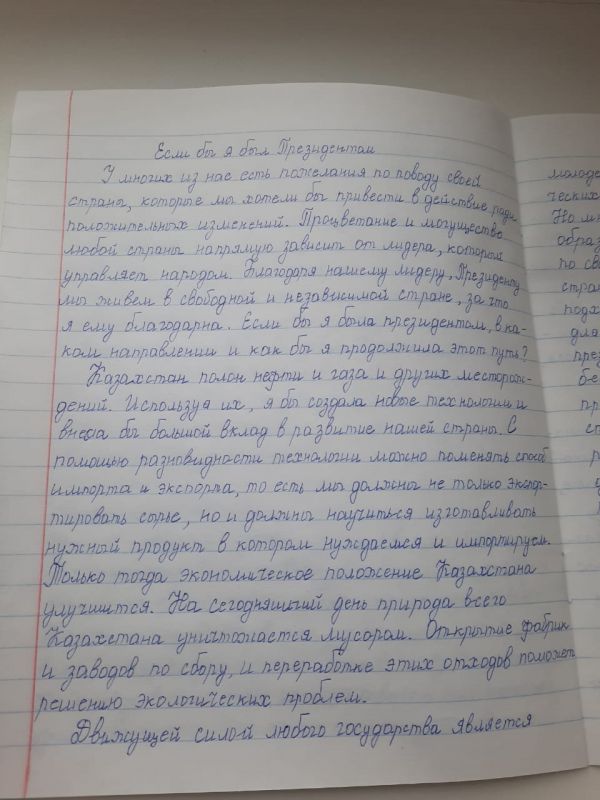 Если бы я был Президентом
У многих из нас есть пожелания по поводу своей
страны, которые мы хотели бы привести в действие ради
положительных изменений. Процветание и могущество
любой страны напрямую зависит от лидера, который
управляет народом. Благодаря нашему лидеру, Президенту
мы живем в свободной и независимой стране, за что
я ему благодарна. Если бы я была президентом, в ка-
ком направлении и как бы я продолжила этот путь?
Казахстан полон нефти и газа и других месторож-
дений. Используя их, я бы создала новые технологии и
внесла бы большой вклад в развитие нашей страны. С
помощью разновидности технологии можно поменять способ
импорта и экспорта, то есть мы должны не только экспор-
тировать сырье, но и должны научиться изготавливать
нужный продукт в котором нуждаемся и импортируем.
Только тогда экономическое положение Казахстана
улучшится. На сегодняшний день природа всего
Казахстана уничтожается мусором. Открытие фабрик
и заводов по сбору, и переработке этих отходов поможет
решению экологических проблем.
Движущей силой любого государства является
молоде
ческих
Но мн
образ
по св
стра
подх
для
през
б-е
пр
сп